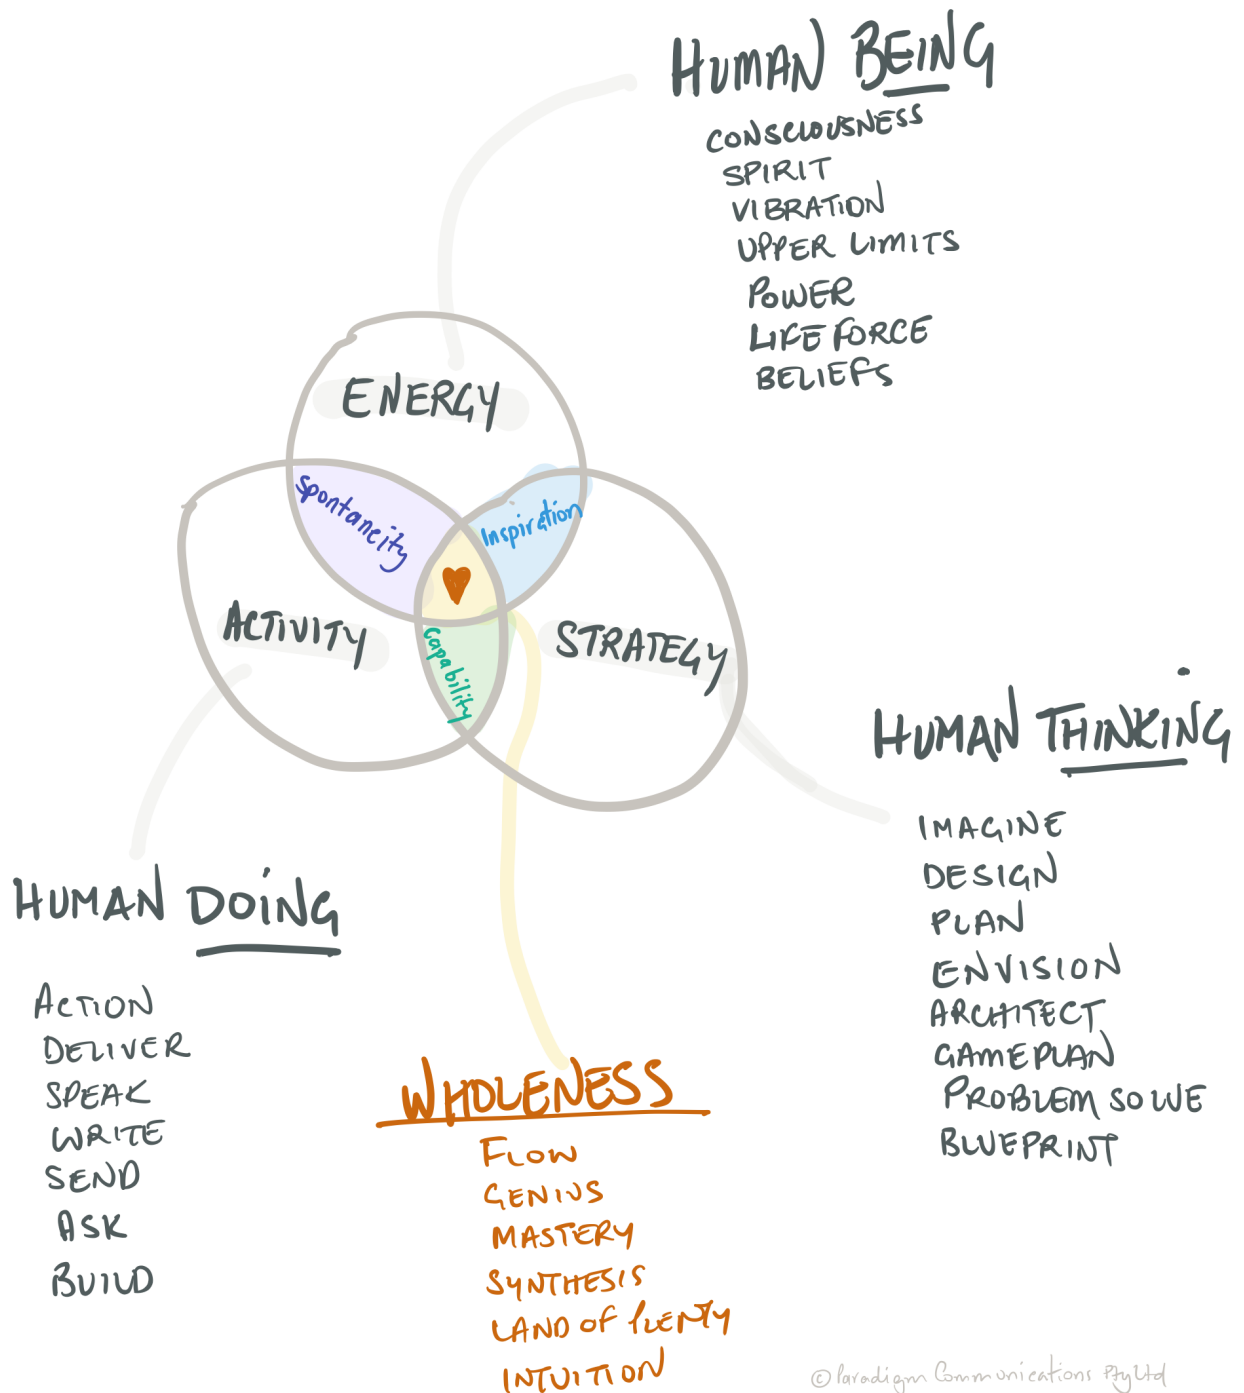 HUMAN BEING
CONSCIOUSNESS
SPIRIT
VIBRATION
UPPER LIMITS
POWER
LIFE FORCE
BELIEFS
ENERGY
Spontaneity
Inspiration
ACTIVITY
STRATEGY
Capability
HUMAN THINKING
IMAGINE
DESIGN
PLAN
ENVISION
ARCHITECT
GAMEPLAN
PROBLEM SOLVE
BLUEPRINT
HUMAN DOING
ACTION
DELIVER
SPEAK
WRITE
SEND
ASK
BUILD
WHOLENESS
FLOW
GENIUS
MASTERY
SYNTHESIS
LAND OF PLENTY
INTUITION
© Paradigm Communications Pty Ltd